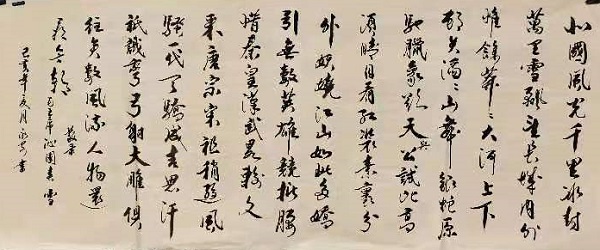 北國風光千里冰封
萬里雪飄望長城内外
惟餘莽〻大河上下
頓失滔〻山舞銀蛇原
馳蠟象欲與天公試比高
須晴日看紅裝素裹分
外妖嬈江山如此多嬌
引無數英雄競折腰
惜秦皇漢武略輸文
采唐宗宋祖稍遜風
騷一代天驕成吉思汗
祇識彎弓射大雕俱
往矣數風流人物還
看今朝
敬录
毛主席沁園春雪
己亥年夏月 書